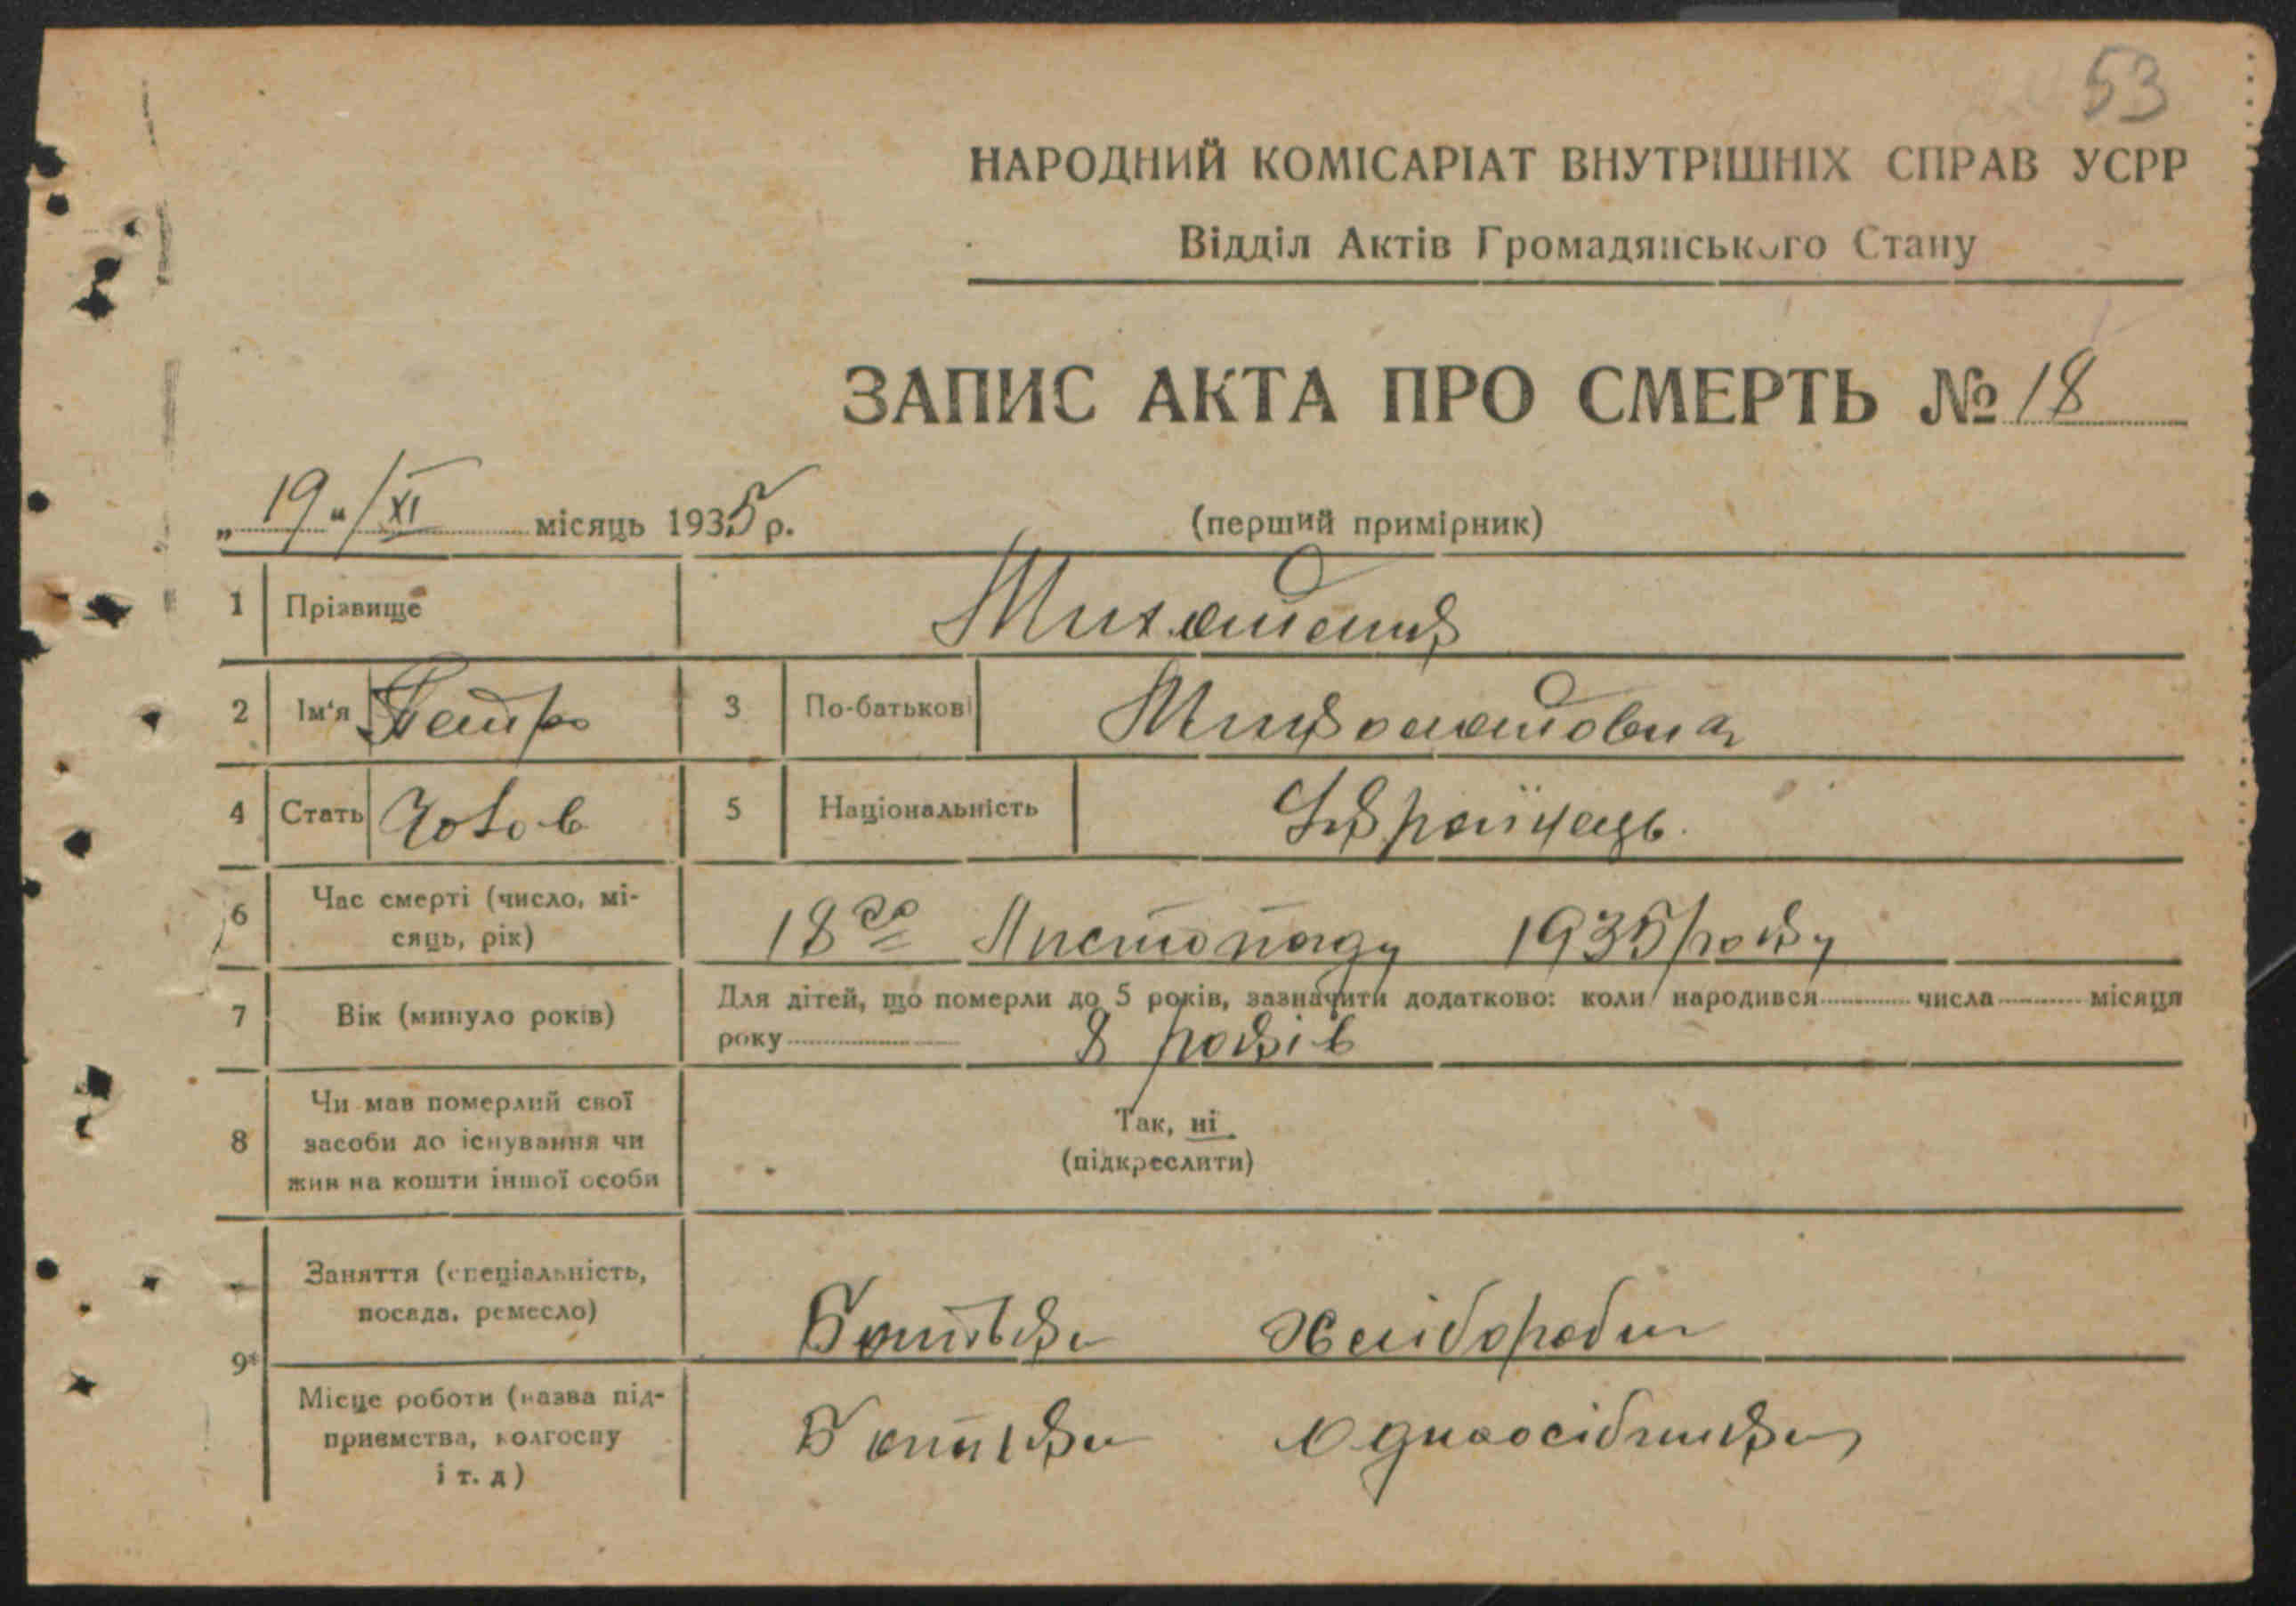 53
НАРОДНИЙ КОМІСАРІАТ ВНУТРІШНІХ СПРАВ УСРР
Відділ Актів Громадянського Стану
ЗАПИС АКТА ПРО СМЕРТЬ № 18
„19“/XI місяць 1935 р. (перший примірник)
1 Прізвище
2 Ім'я Петро 3 По-батькові
4 Стать Чолов 5 Національність Українець.
6 Час смерті (число, мі-
сяць, рік) 18го Листопаду 1935 року
7 Вік (минуло років) Для дітей, що померли до 5 років, зазначити додатково: коли народився числа місяця
року 8 років
8 Чи мав померлий свої
засоби до існування чи
жив на кошти іншої особи
Так, ні
(підкреслити)
9* Заняття (спеціальність,
посада, ремесло) Батьки хлібороби
Місце роботи (назва під-
приємства, колгоспу
і т. д) Батьки Одноосібники